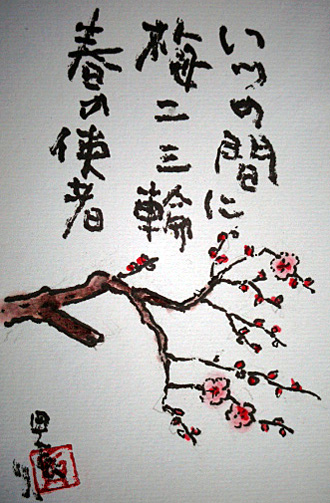 いつの間に
梅二三輪
春の使者